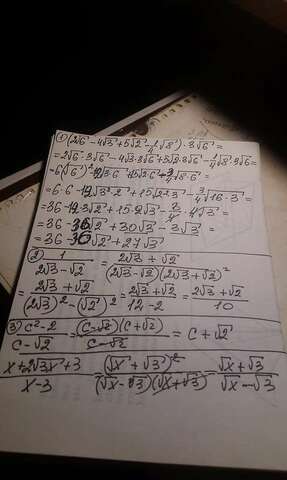 1) (2√6 - 4√3 + 5√2 - 1/4 √8) · 3√6 =
= 2√6 · 3√6 - 4√3 · 3√6 + 5√2 · 3√6 - 1/4 √8 · 3√6 =
= 6(√6)² - 12√3·6 + 15√2·6 - 3/4 √8·6 =
= 6·6 - 12√3²·2 + 15√2²·3 - 3/4 √16·3 =
= 36 - 12·3√2 + 15·2√3 - 3/4 · 4√3 =
= 36 - 36√2 + 30√3 - 3√3 =
= 36 - 36√2 + 27√3
2) 1/(2√3 - √2) = (2√3 + √2)/((2√3 - √2)(2√3 + √2)) =
= (2√3 + √2)/((2√3)² - (√2)²) = (2√3 + √2)/(12 - 2) = (2√3 + √2)/10
3) (c² - 2)/(c - √2) = ((c - √2)(c + √2))/(c - √2) = c + √2
(x + 2√3x + 3)/(x - 3) = (√x + √3)²/((√x - √3)(√x + √3)) = (√x + √3)/(√x - √3)